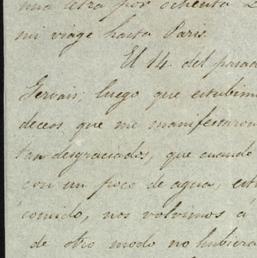 una letra por ochenta
mi viage hasta Paris.
El 14. del pasad
Gervais; luego que estubim
deceos que me manifestaron
tan desgraciados, que cuando
con un poco de agua, est
comido, nos volvimos a
de otro modo no hubiera